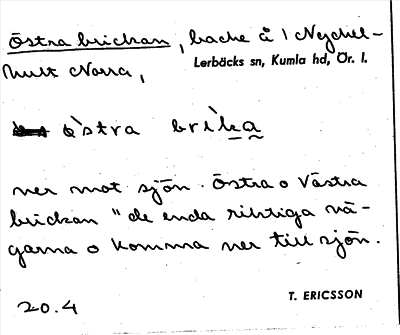 Östra brickan, backe å 1 Nyckel-
hult Norra,
Lerbäcks sn, Kumla hd, Ör. l.
ò̀stra brìka
ner mot sjön. Östra o Västra
brickan "de enda riktiga vä-
garna o komma ner till sjön.
20.4
T. ERICSSON